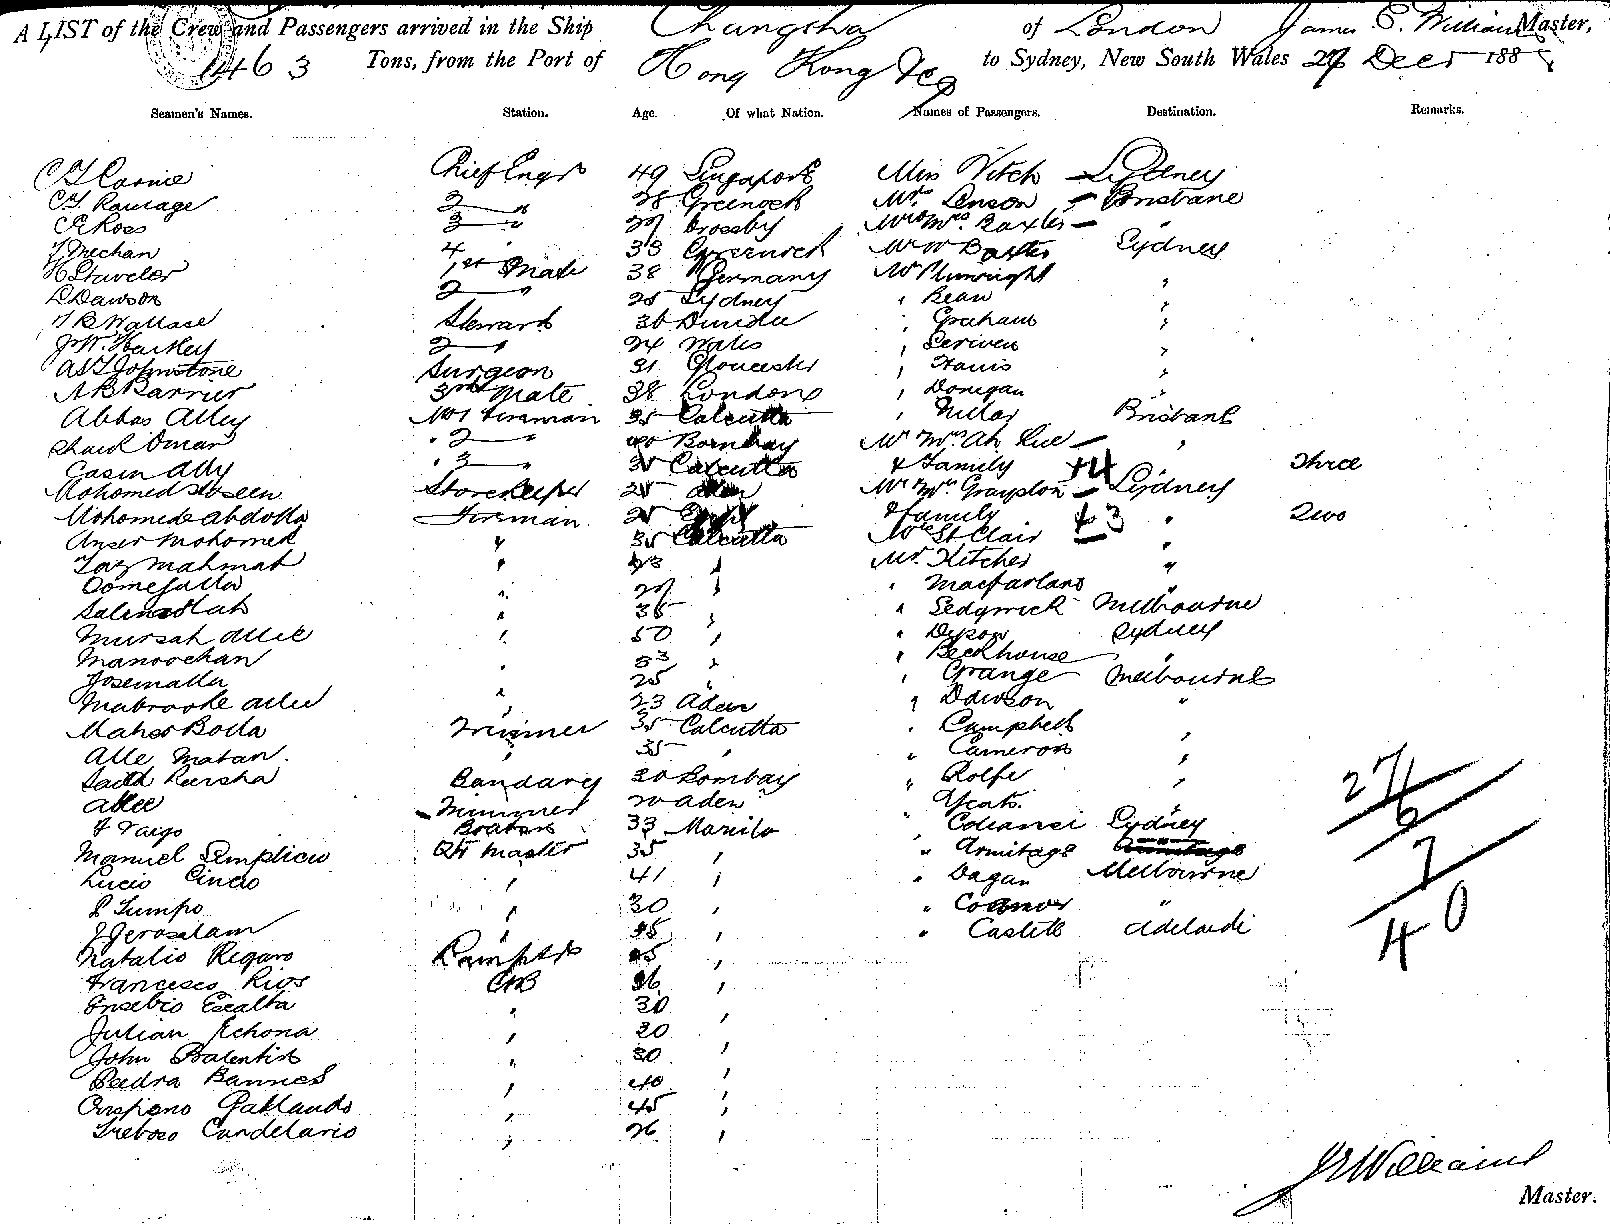 A LIST of the Crew and Passengers arrived in the Ship Changsha of London James E. Williams Master,
1463 Tons, from the Port of Hong Kong &c to Sydney, New South Wales 27 Decr 188
Seamen's Names. Station. Age. Of what Nation. Names of Passengers. Destination. Remarks.
Chief Engr 49 Singapore Miss Sydney
2 " 28 Greenock Mr. Brisbane
C R Ross 3 " 29 Crosby Mr & Mrs. Baxter "
J Mechan 4 " 33 Greenwich Mr W Baxter Sydney
H Staveler 1st Mate 38 Germany Mr Plumright "
L Dawson 2 " 25 Sydney " Bean "
J B Wallace Steward 36 Dundee " Graham "
J. W. Hartley 2 " 24 Wales " Scriven "
A S J Johnstone Surgeon 31 Gloucester " "
A B Barrier 3rd Mate 38 London " Donegan "
Abbas Alley No 1 Fireman 35 Calcutta " Brisbane
Omar " 2 " 40 Bombay Mr Mrs Ah Lue "
Casin Ally " 3 " 35 Calcutta & Family +4 Three
Mohomed Hoseen Storekeeper 25 Aden Mr Mrs Graydon Sydney
Mohomed Abdolla Fireman 25 & family + 3 " Two
Anser Mohomed " 35 Calcutta St Clair "
Mahmat " 43 " Mr. Kitcher "
Oomefalla " " " Macfarlane "
" 35 " " Sedgwick Melbourne
Mursah Allie " 50 " " Dyson Sydney
Manoochan " 33 " " Beckhouse "
Josemalla " 25 " " Grange Melbourne
Mabrooke Allee " 23 Aden " Dawson "
Maher Bolla Trimmer 35 Calcutta " Campbell "
Alle Matan " 35 " " Cameron "
Bandarey 20 Bombay " Rolfe "
Allee Trimmer 20 Aden " Yeats "
Boatsn 33 Manila " Sydney
Manuel Semplicio Qtr Master 35 " " Armitage
Lucio " 41 " " Dagan Melbourne
P Tumpo " 30 " " Connor "
J Jerosalam " 45 " " Adelaide
Natalio Regaro Lamptr "
Francesco Rios AB 26 "
Ensebio Escalta " 30 "
Julian Echona " 20 "
John Balentin " 30 "
Pedra Bannes " 40 "
Crispeno Gallando " 45 "
Candelario " 26 "
27
6
7
40
J E Williams
Master.